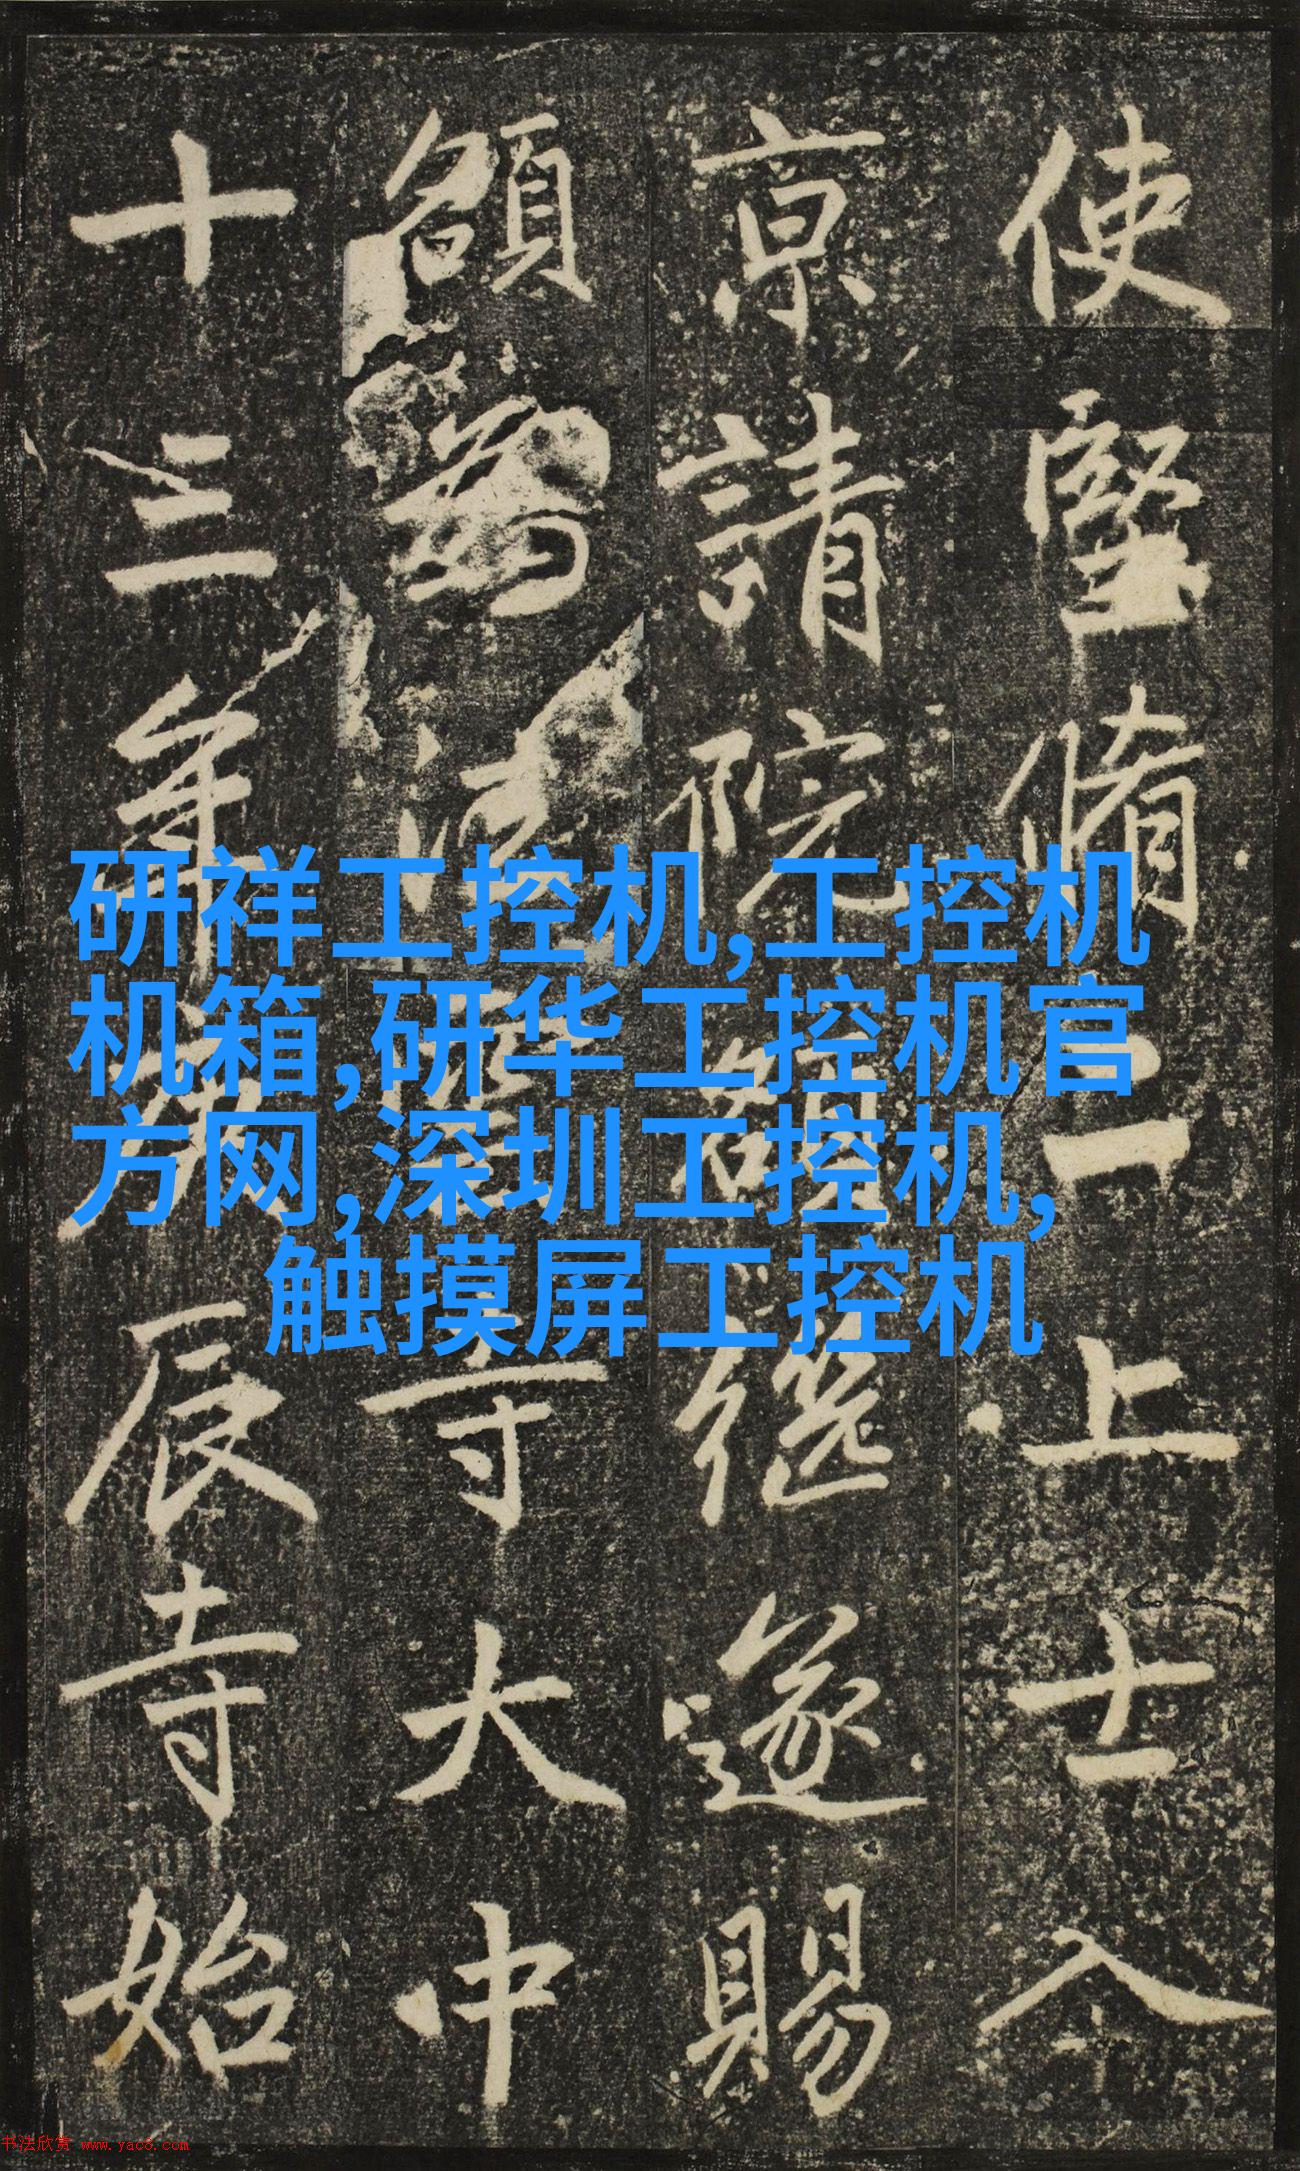 使堅脩二上士入
京請院額継遂賜
額為法寺大中
十三年辰寺始
研祥工控机,工控机
机箱,研华工控机官
方网,深圳工控机,
触摸屏工控机
书法欣赏 www.yac8.com